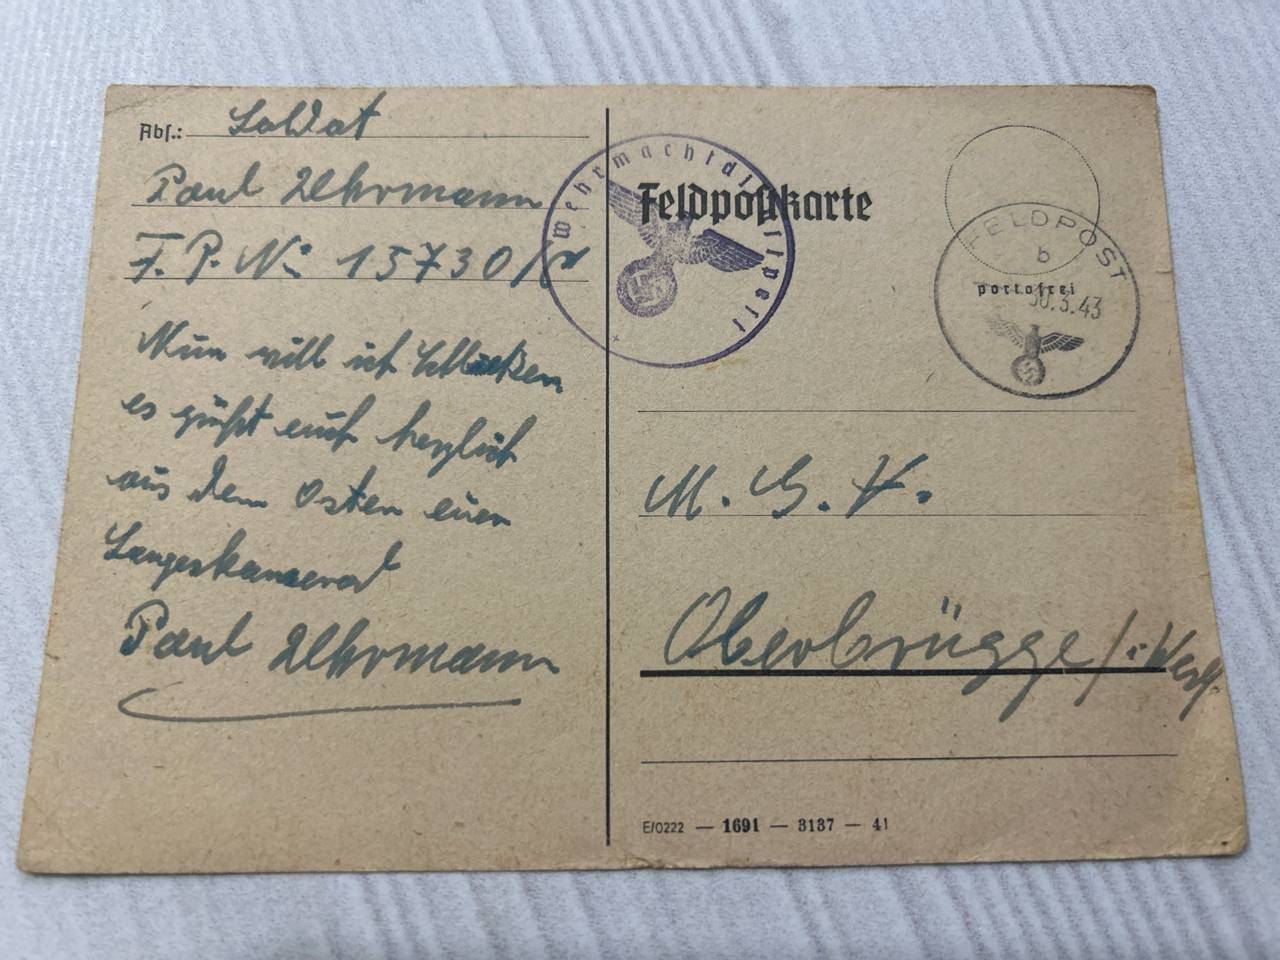 Abs.: Soldat
Paul Uhrmann
F. P. Nr 15730/
Nun will ich schließen
es grüßt euch herzlich
aus dem Osten euer
Sangeskamerad
Paul Uhrmann
Wehrmachtdienstpost
Feldpostkarte
FELDPOST
b
portofrei
30.3.43
M. G. V.
Oberbrügge / i. Westf.
E/0222 — 1691 — 3137 — 41